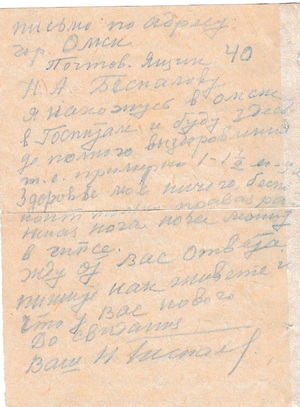 письмо по адресу
гор. Омск
Почтов. Ящик 40
Н. А. Беспалову
Я нахожусь в Омске
в Госпитале и буду здесь
до полного выздоровления
т. е. примерно 1-1½
Здоровье мое ничего беспо
коит только правая
нога пока
в гипсе.
Жду от Вас Ответа
пишите как живете и
что у Вас нового
До свидания
Ваш Н.